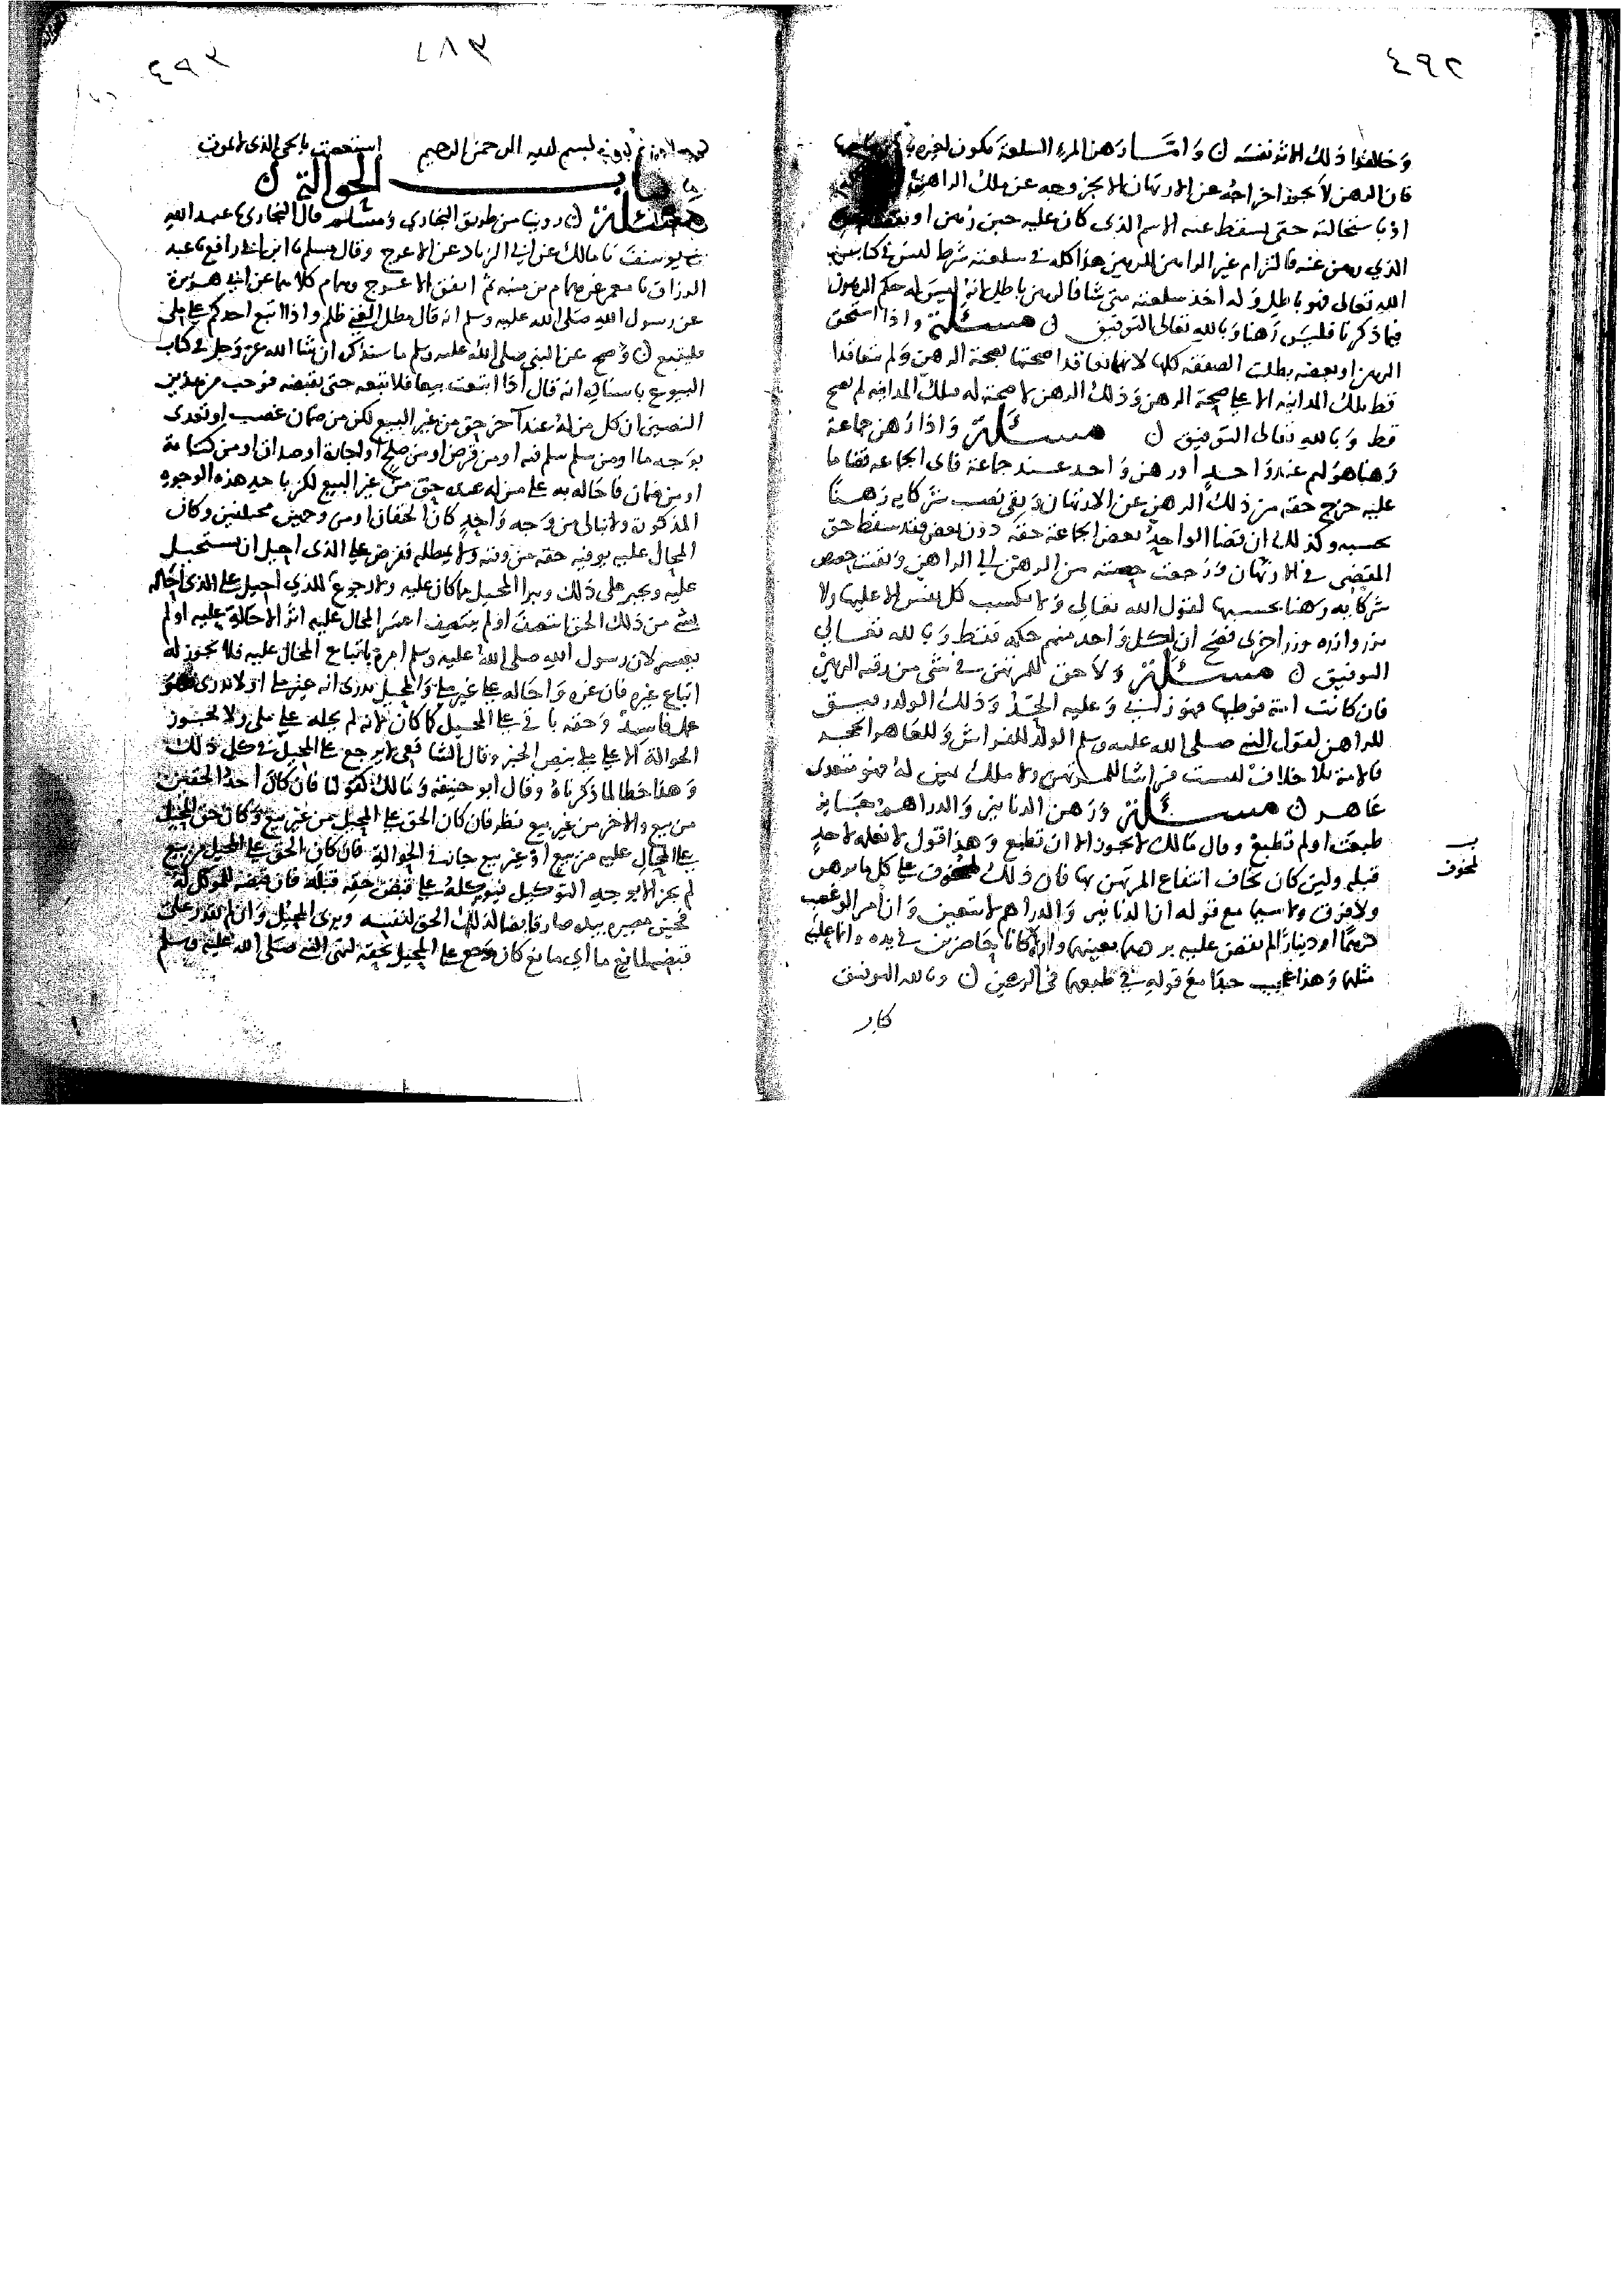 ٤٩٢
وخالفوا ذلك لاثر نفسه ن واما رهن المرء السلعة تكون لغيره
فان الرهن لا يجوز اخراجه عن الارتهان الا بخروجه عن ملك الراهن
او باستحالته حتى يسقط عنه الاسم الذي كان عليه حين رهن او
الذي رهن عنه فالتزام غير الراهن الرهن هذا كله في سلعته شرط ليس في كتاب
الله تعالى فهو باطل وله اخذ سلعته متى شا فالرهن باطل لانه ليس له حكم الرهون
فيما ذكرنا فليس رهنا وبالله تعالى التوفيق ن مسئلة واذا استحق
الرهن او بعضه بطلت الصفقة كلها لانهما تعاقدا صحتها بصحة الرهن ولم يتعاقدا
قط تلك المداينة الا على صحة الرهن وذلك الرهن لا صحة له فتلك المداينة لم تصح
قط وبالله تعالى التوفيق ن مسئلة واذا رهن جماعة
رهنا هو لهم عند واحد او رهن واحد عند جماعة فاى الجماعة قضا ما
عليه خرج حقه من ذلك الرهن عن الارتهان وبقى نصيب شركايه رهنا
بحسبه وكذلك ان قضا الواحد بعض الجماعة حقه دون بعض فقد سقط حق
المقتضى في الارتهان ورجعت حصته من الرهن الى الراهن وبقيت حصص
شركايه رهنا بحسبها لقول الله تعالى ولا تكسب كل نفس الا عليها ولا
تزر وازرة وزر اخرى فصح ان لكل واحد منهم حكمه فقط وبالله تعالى
التوفيق ن مسئلة ولا حق للمرتهن في شى من رقبة الرهن
فان كانت امة فوطيها فهو زانى وعليه الحد وذلك الولد رقيق
للراهن لقول النبي صلى الله عليه وسلم الولد للفراش وللعاهر الحجر
فالامة بلا خلاف ليست فراشا للمرتهن ولا ملك يمين له فهو متعدى
عاهر ن مسئلة ورهن الدنانير والدراهم جايز
طبعت او لم تطبع وقال مالك لا يجوز الا ان تطبع وهذا قول لا نعلمه لاحد
قبله ولين كان يخاف انتفاع المرتهن بها فان ذلك لمخوف على كل ما يرهن
لمخوف
ولا فرق ولا سيما مع قوله ان الدنانير والدراهم لا تتعين وان امرا لو غصب
درهما او دينارا لم نقض عليه بردهما بعينهما وان كانا حاضرين في يده وانما عليه
مثلهما وهذا عجيب جدا مع قوله في طبعهما في الرهن ن وبالله التوفيق
كتاب
٤٩٣
٤٨٣
بسم الله الرحمن الرحيم استعصمت بالحى الذى لا يموت
كتاب الحوالة ن
مسئلة ن روينا من طريق البخاري ومسلم قال البخارى نا عبد الله
بن يوسف نا مالك عن ابي الزناد عن الاعرج وقال مسلم نا ابن رافع نا عبد
الرزاق نا معمر عن همام بن منبه ثم اتفق الاعرج وهمام كلاهما عن ابي هريرة
عن رسول الله صلى الله عليه وسلم انه قال مطل الغني ظلم واذا اتبع احدكم على ملى
فليتبع ن وصح عن النبي صلى الله عليه وسلم ما سنذكره ان شا الله عز وجل في كتاب
البيوع باسناده انه قال اذا ابتعت بيعا فلا تبعه حتى تقبضه فوجب من هذين
النصين ان كل من له عند آخر حق من غير البيع لكن من ضمان غصب او تعدى
بوجه ما او من سلم سلم فيه او من قرض او من صلح او اجارة او صداق او من كتابة
او من ضمان فاحاله به على من له عنده حق من غير البيع لكن باحد هذه الوجوه
المذكورة ولا نبالى من وجه واحد كان الحقان او من وجهين مختلفين وكان
المحال عليه يوفيه حقه من وقته ولا يمطله ففرض على الذى احيل ان يستحيل
عليه ويجبر على ذلك ويبرا المحيل مما كان عليه ولا رجوع للذى احيل على الذى احاله
بشى من ذلك الحق انتصف او لم ينتصف اعسر المحال عليه اثر الاحالة عليه او لم
يعسر لان رسول الله صلى الله عليه وسلم امره باتباع المحال عليه فلا يجوز له
اتباع غيره فان غره واحاله على غير ملى والمحيل يدرى انه غير ملى او لا يدرى فهو
عمل فاسد وحقه باقى على المحيل كما كان لانه لم يحله على ملى ولا تجوز
الحوالة الا على ملى بنص الخبر وقال الشافعى لا يرجع على المحيل في كل ذلك
وهذا خطا لما ذكرناه وقال ابو حنيفة ومالك كقولنا فان كان احد الحقين
من بيع والاخر من غير بيع نظر فان كان الحق على المحيل من غير بيع وكان حق المحيل
على المحال عليه من بيع او غير بيع جازت الحوالة فان كان الحق على المحيل من بيع
لم يجز الا بوجه التوكيل فيوكله على قبض حقه قبله فان قبضه للموكل له
فحين مصيره بيده صار قابضا لذلك الحق لنفسه وبرى المحيل وان لم يقدر على
قبضه لمانع ما اي مانع كان رجع على المحيل بحقه لنهى النبي صلى الله عليه وسلم